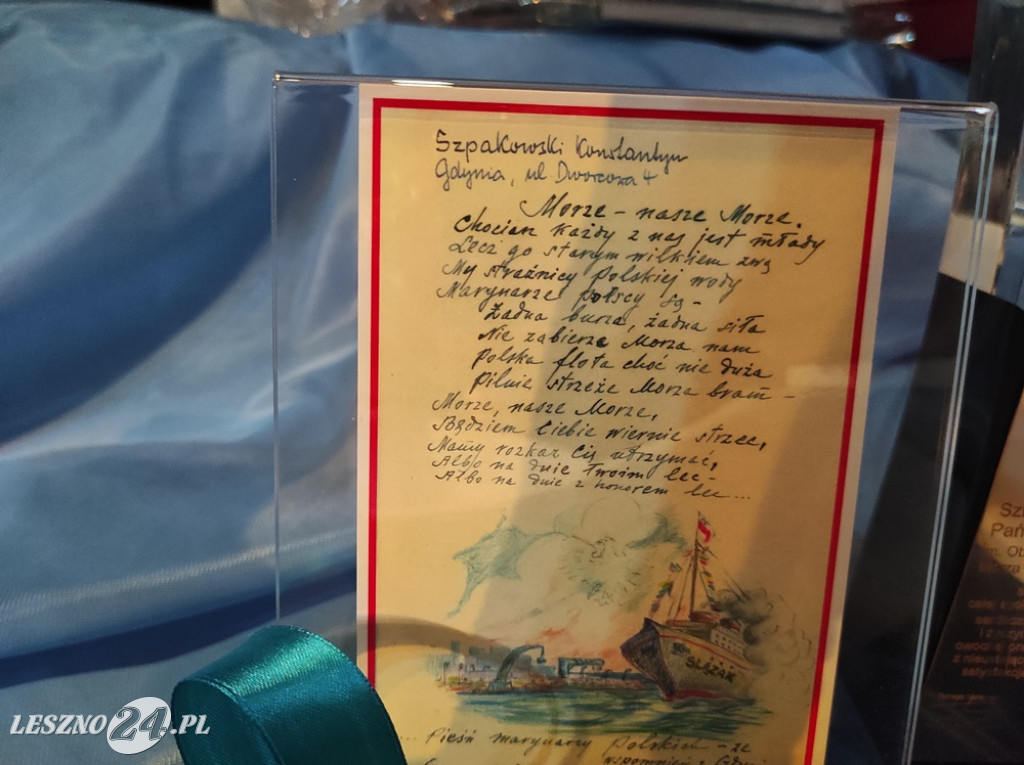 Szpakowski Konstantyn
Gdynia, ul. Dworcowa 4
Morze - nasze Morze.
Chociaż każdy z nas jest młody
Lecz go starym wilkiem zwą
My strażnicy polskiej wody
Marynarze polscy są -
Żadna burza, żadna siła
Nie zabierze Morza nam
Polska flota choć nie duża
Pilnie strzeże Morza bram -
Morze, nasze Morze,
Będziem Ciebie wiernie strzec,
Mamy rozkaz Cię utrzymać,
Albo na dnie Twoim lec -
Albo na dnie z honorem lec...
ŚLĄZAK
.... Pieśń marynarzy Polskich - ze
wspomnień z Gdyni
Sz
Pań
m. Ob
LESZNO24.PL